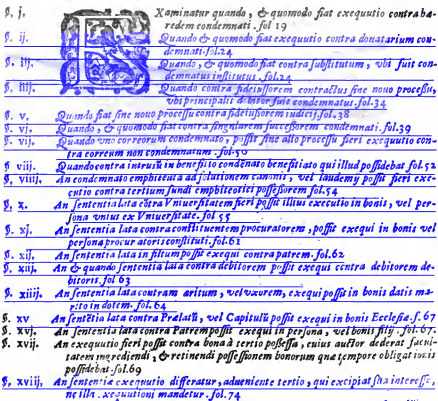 §. j. Examinatur quando, & quomodo fiat exequutio contra ha-
redem condemnati. fol 19
§. ij. Quando & quomodo fiat exequutio contra donatarium con-
demnati. fol.24
§. iij. Quando fiat contra substitutum, vbi fuit con-
demnatus institutus. fol.24
§. iiij. Quando contra fideiussorem contractus sine nouo processu,
vbi principalis debitor fuit condemnatus. fol.34
§. v. Quando fiat sine nouo processu contra fideiussorem iudicij. fol.38
§. vj. Quando, & quomodo fiat contra singularem successorem condemnati. fol.39
§. vij. Quando vno correorum condemnato, possit sine alio processu fieri exequutio con-
tra correum non condemnatum. fol.50
§ viij. Quando contra intrusum in beneficio condenato beneficiato qui illud possidebat fol.52
§. viiij. An condemnato emphiteuta ad solutionem canonis, vel laudemy possit fieri exe-
cutio contra tertium fundi emphiteotici possessorem fol.54
§. x. An sententia lata cõtra Vniuersitatem fieri possit illius executio in bonis, vel per-
sona vnius ex Vniuersitate. fol 55
§. xj. An sententia lata contra constituentem procuratorem, possit exequi in bonis vel
persona procuratoris constituti. fol.61
§. xij. An sententia lata in filium possit exequi contra patrem. fol.62
§. xiij. An & quando sententia lata contra debitorem possit exequi contra debitorem de-
bitoris. fol 63
§. xiiij. An sententia lata contra maritum, vel vxorem, exequi possit in bonis datis ma-
rito in dotem. fol.64
§. xv An sentẽtia lata contra Prælatũ, vel Capitulũ possit exequi in bonis Ecclesiæ. f.67
§. xvj. An sententia lata contra Patrem possit exequi in persona, vel bonis filij. fol.67.
§. xvij. An exequutio fieri possit contra bona à tertio possessa, cuius auctor dederat facul-
tatem ingrediendi, & retinendi possessionem bonorum quæ tempore obligationis
possidebat. fol.69
§. xviij. An sententiæ exequutio differatur, adueniente tertio, qui excipiat sua interesse,
ne illa exequutioni mandetur. fol.74